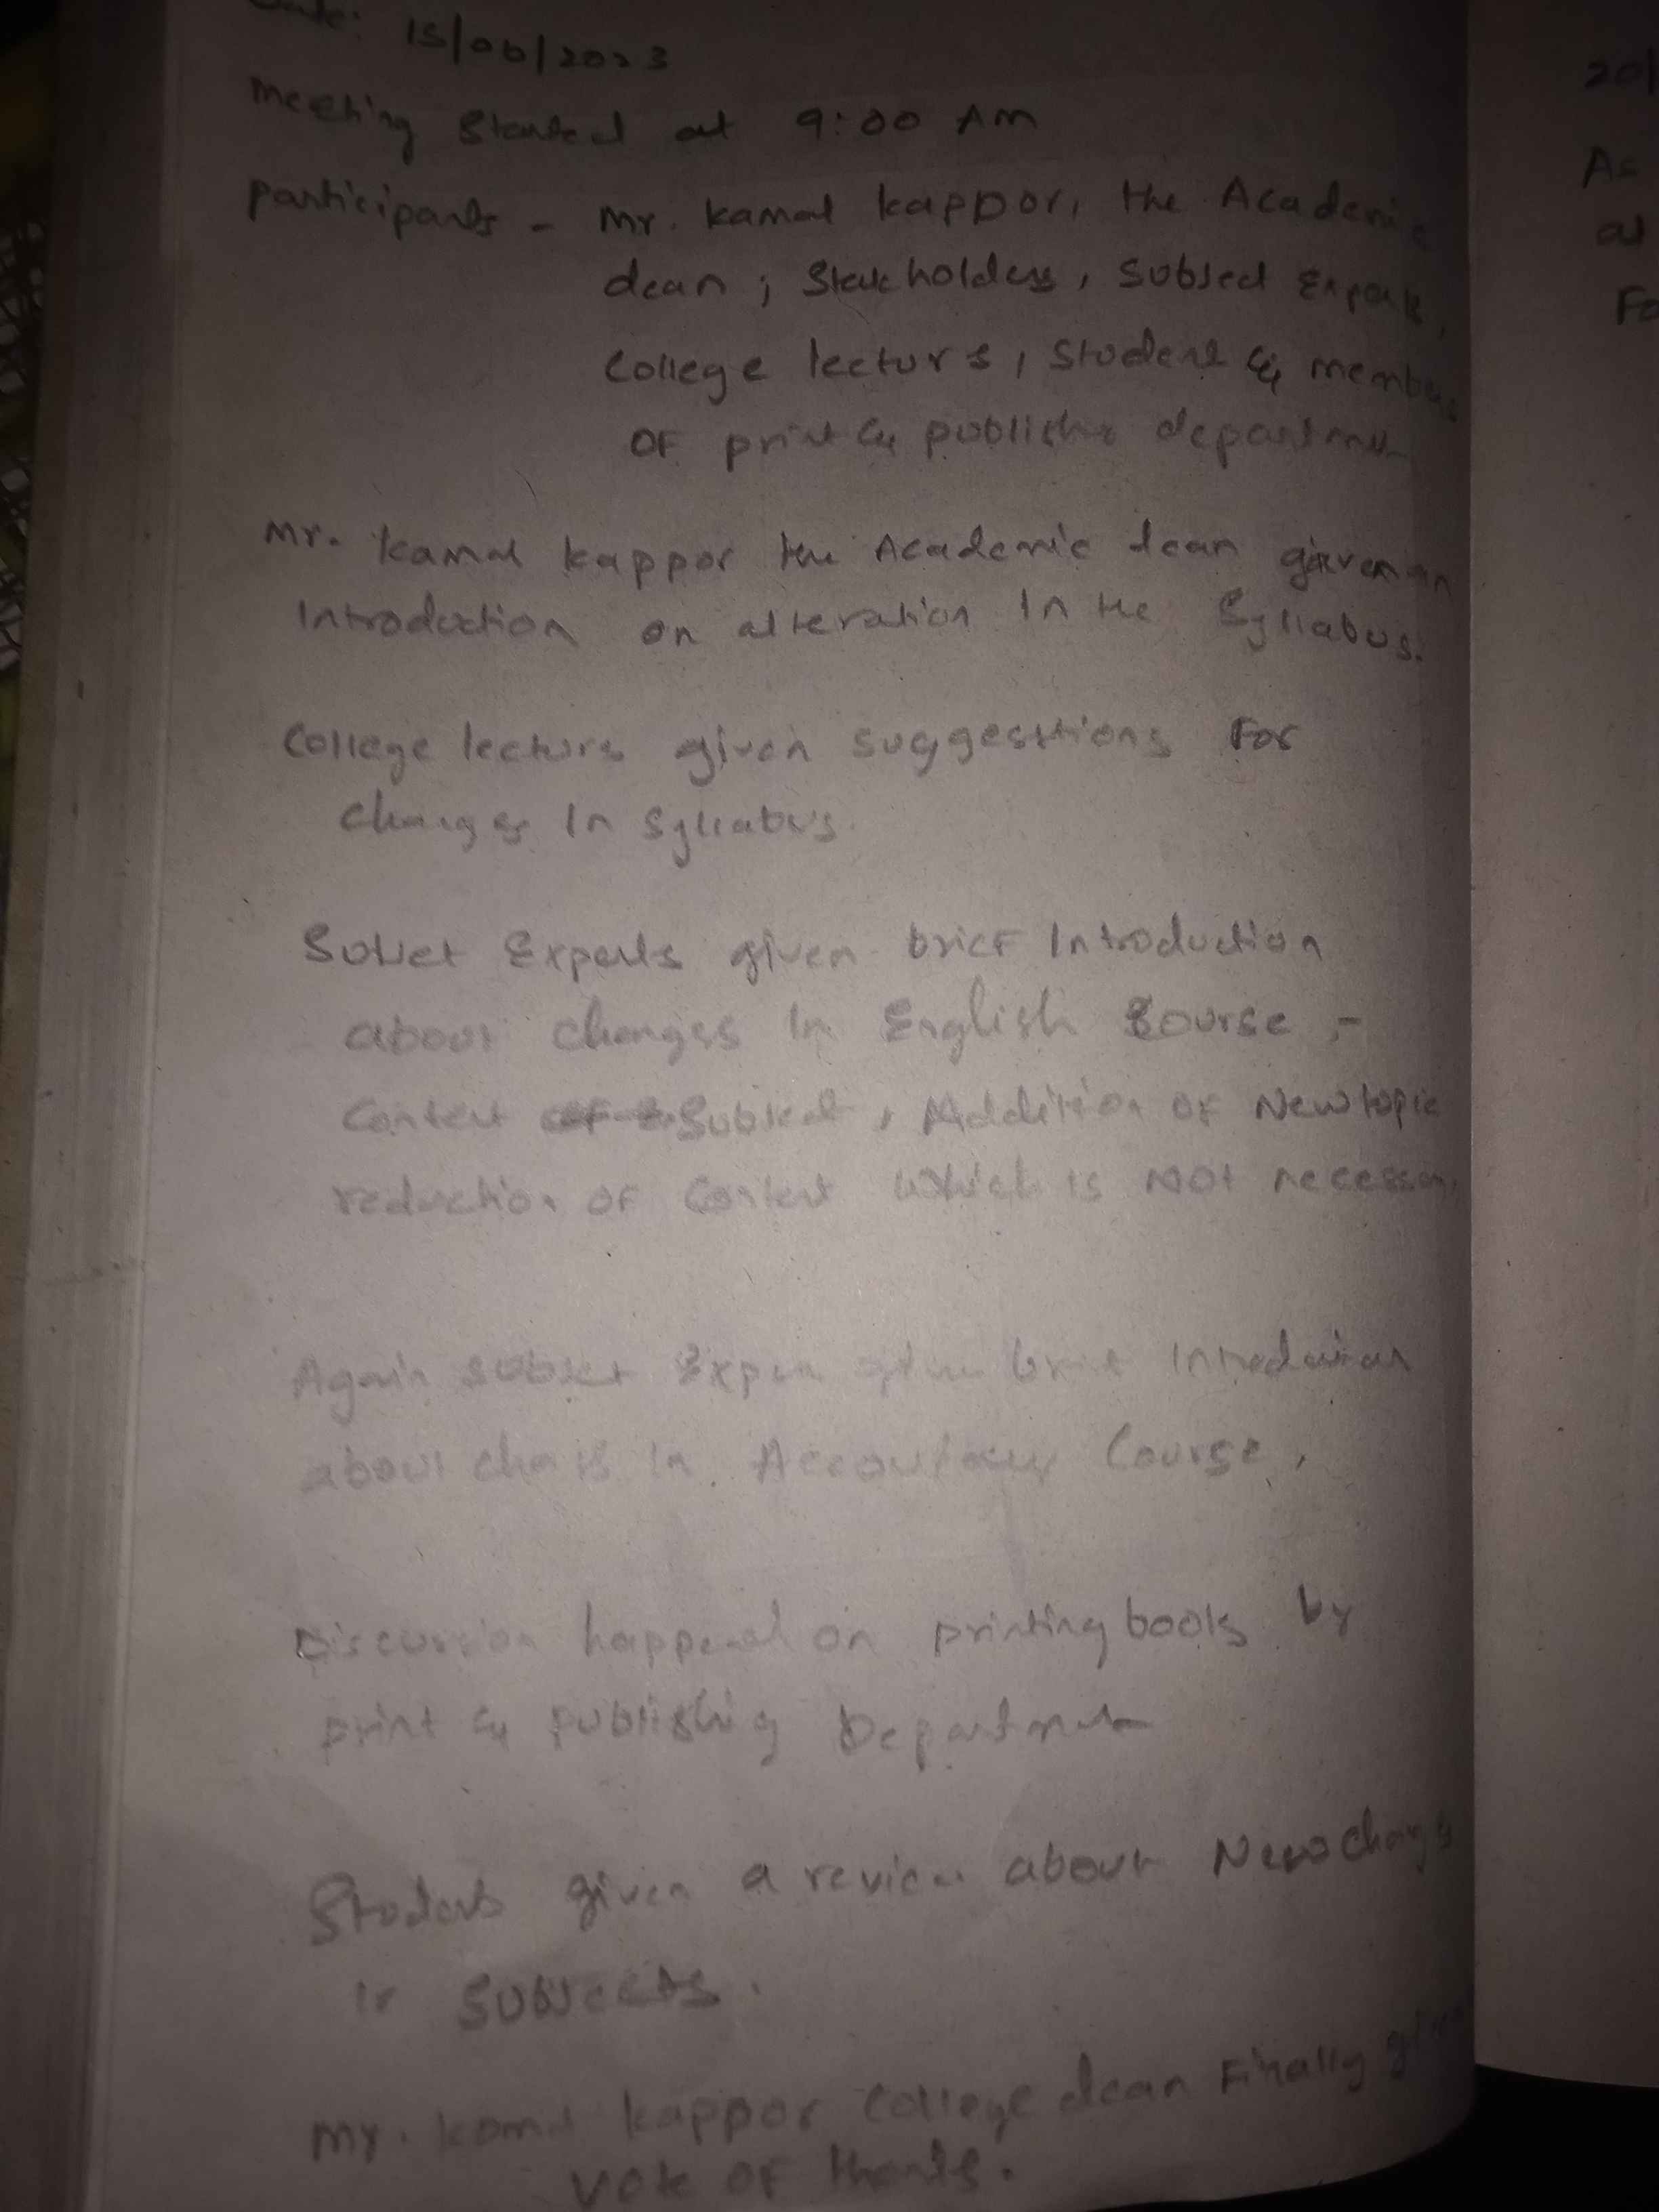 Date: 15/06/2023
Meeting Started at 9:00 Am
participants - Mr. Kamal kappor, the Academic
dean ; Stakeholders, Subject Experts,
College lecturs, Student & members
OF print & publishing department
Mr. Kamal kappor the Academic dean given an
Introduction on alteration In the Syllabus.
College lecturs given suggesttions For
changes In Syllabus.
Subject Experts given brief Introduction
about changes In English Course,-
Content Subject, Addition OF New topic
reduction OF Content which is NOt necessary
Again subject Expert given brief Introduction
about changes In Accountancy Course,
Discussion happened on printing books by
print & publishing Department
Students given a review about New changes
in SUBJECTS.
Mr. Kamal kappor College dean Finally given
vote OF thanks.
20/
As
at
Fo